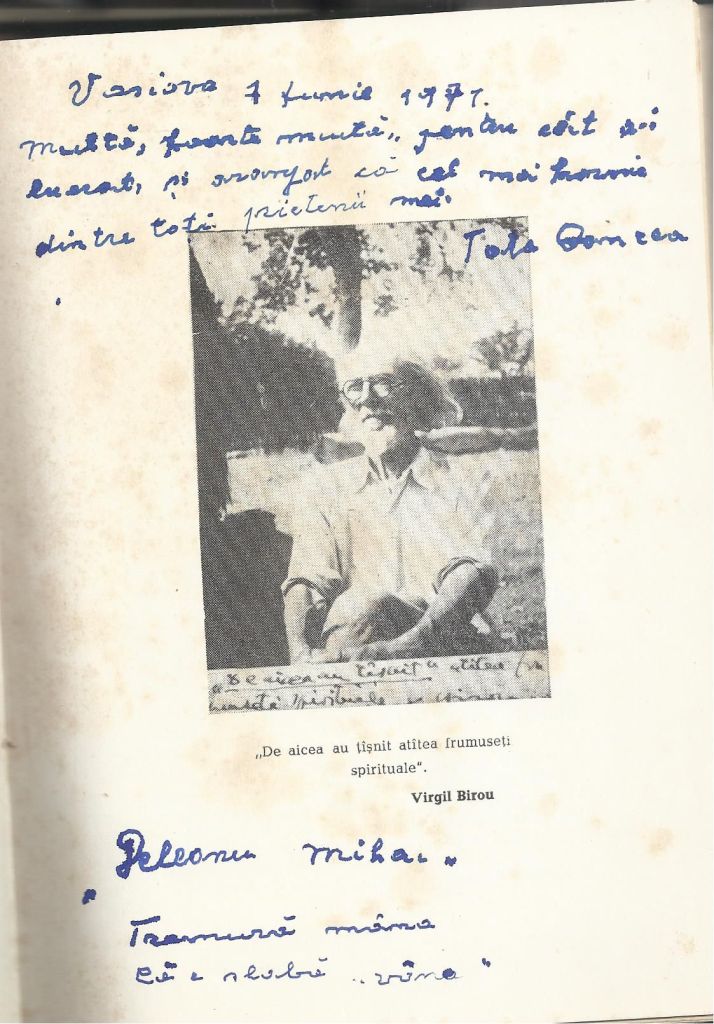 Vasiova 7 Iunie 1971.
Multă, foarte multă, pentru cât a-i
lucrat, și aranjat că cel mai harnic
dintre toți prietenii mei.
Tata Oancea
„De aicea au tâșnit" atîtea
spirituale
„De aicea au țîșnit atîtea frumuseți
spirituale“.
Virgil Birou
Peleanu Mihai
Tremură mâna
Că-i slabă „vâna"